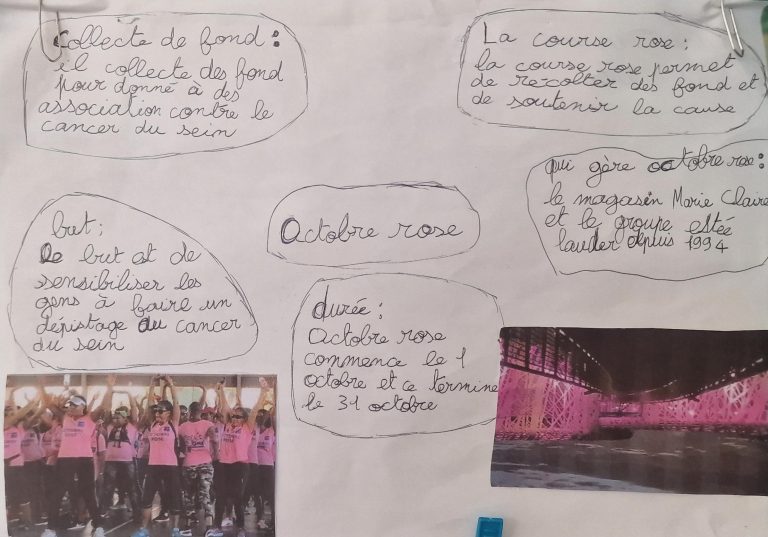 Collecte de fond :
il collecte des fond
pour donné à des
association contre le
cancer du sein
La course rose :
la course rose permet
de recolter des fond et
de soutenir la cause
qui gère octobre rose :
le magasin Marie Claire
et le groupe estée
lauder depuis 1994
Octobre rose
but :
Le but et de
sensibiliser les
gens à faire un
dépistage du cancer
du sein
durée :
Octobre rose
commence le 1
octobre et ce termine
le 31 octobre